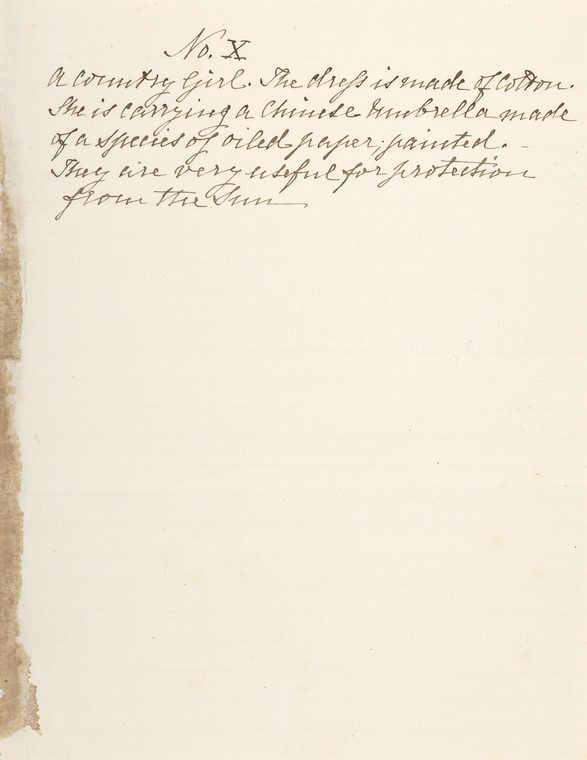 No. X
A country Girl. The dress is made of cotton.
She is carrying a Chinese Umbrella made
of a species of oiled paper, painted. –
They are very useful for protection
from the Sun